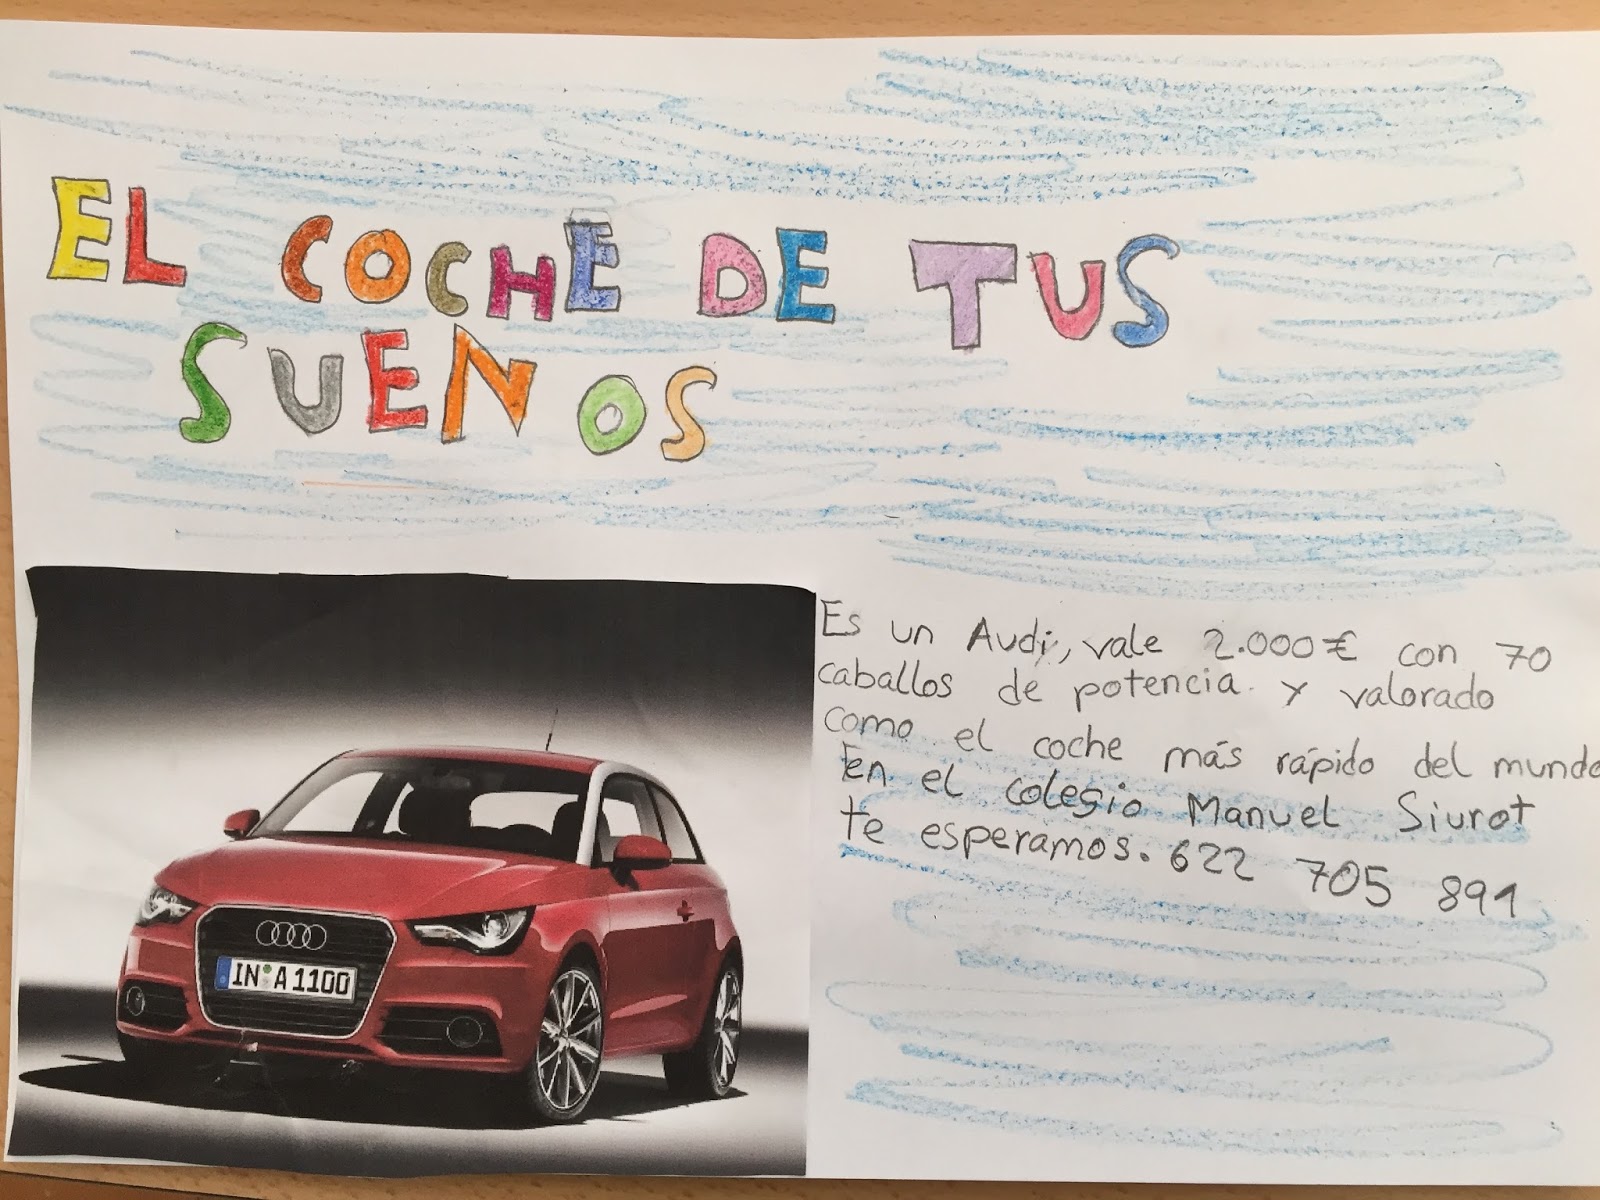 EL COCHE DE TUS
SUENOS
Es un Audi, vale 2.000€ con 70
caballos de potencia. y valorado
como el coche más rápido del mundo
En el colegio Manuel Siurot
te esperamos. 622 705 891
IN A 1100